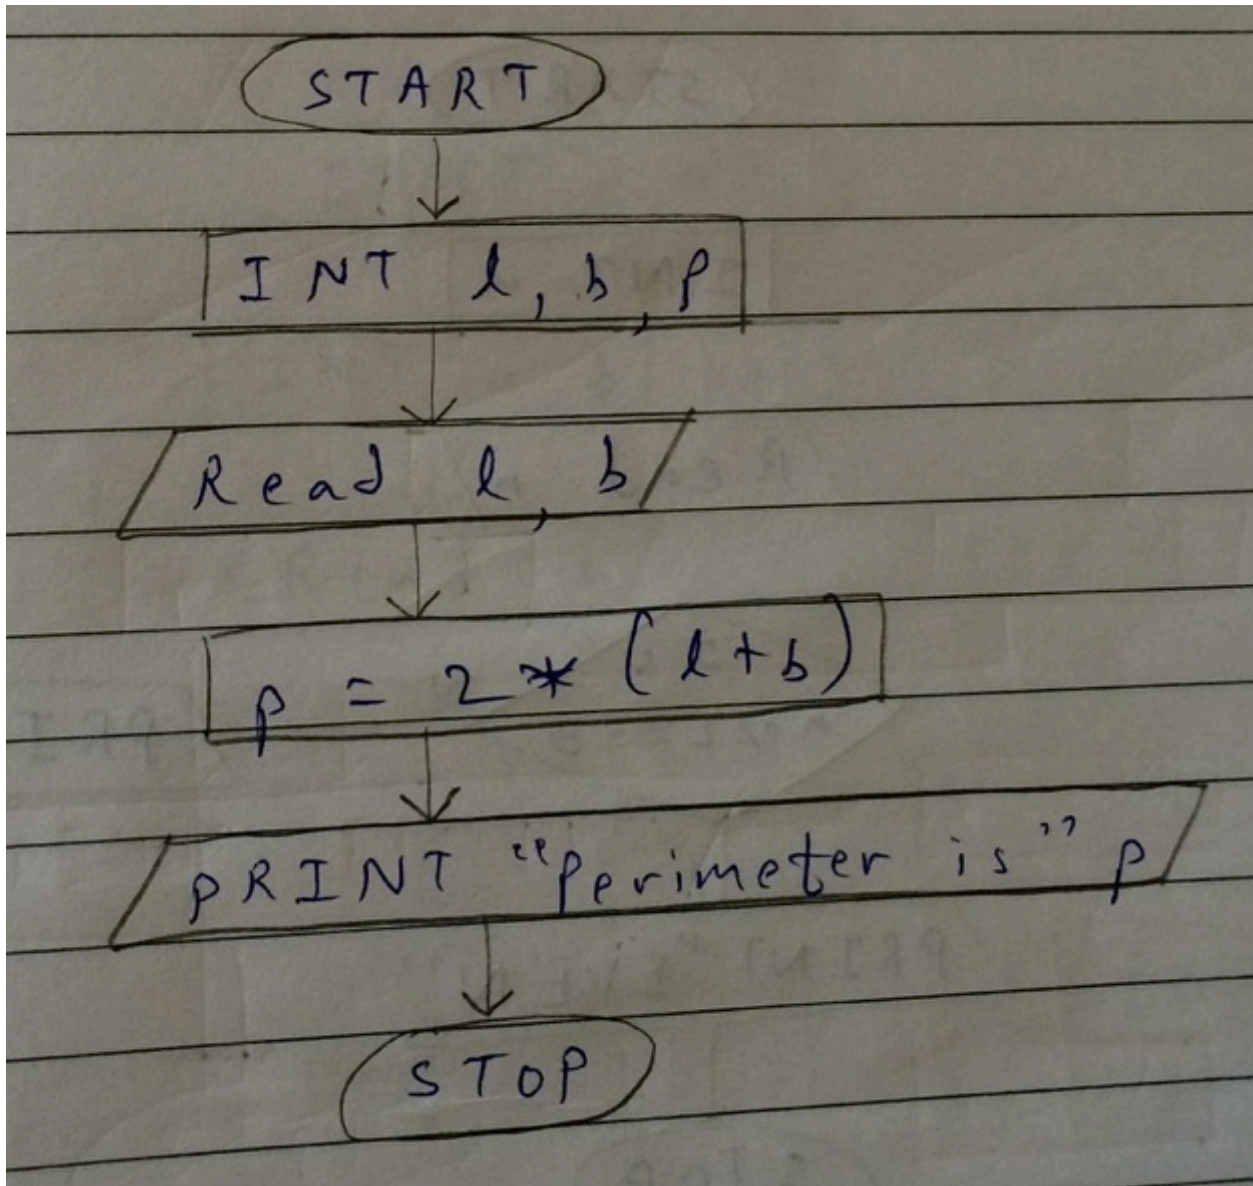 START
INT l, b, p
Read l, b
p = 2 * (l+b)
PRINT "Perimeter is" p
STOP